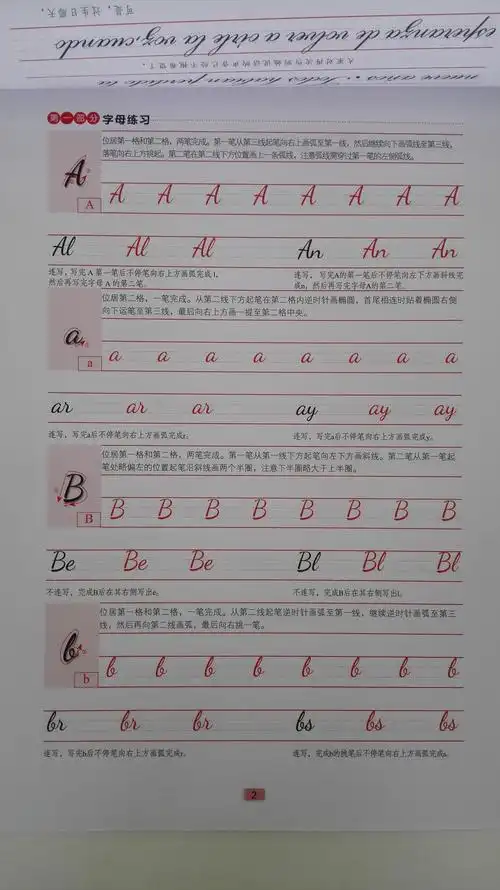 第一部分 字母练习
位居第一格和第二格，两笔完成。第一笔从第三线起笔向右上画弧至第一线，然后继续向下画弧线至第三线，
落笔向右上方挑起。第二笔在第二线下方位置画上一条弧线，注意弧线需穿过第一笔的左侧弧线。
A
A A A A A A A A A
Al Al Al An An An
连写，写完 A 第一笔后不停笔向右上方画弧完成 l，
然后再写完字母 A 的第二笔。
连写，写完A的第一笔后不停笔向左下方画斜线完
成n，然后再写完字母A的第二笔。
位居第二格，一笔完成。从第二线下方起笔在第二格内逆时针画椭圆，首尾相连时贴着椭圆右侧
向下运笔至第三线，最后向右上方画一提至第二格中央。
a
a a a a a a a a a
ar ar ar ay ay ay
连写，写完a后不停笔向右上方画弧完成r。
连写，写完a后不停笔向右上方画弧完成y。
位居第一格和第二格，两笔完成。第一笔从第一线下方起笔向左下方画斜线。第二笔从第一笔起
笔处略偏左的位置起笔沿斜线画两个半圈，注意下半圈略大于上半圈。
B
B B B B B B B B B
Be Be Be Bl Bl Bl
不连写，完成B后在其右侧写出e。
不连写，完成B后在其右侧写出l。
位居第一格和第二格，一笔完成。从第二线起笔逆时针画弧至第一线，继续逆时针画弧至第三
线，然后再向第二线画弧，最后向右挑一笔。
b
b b b b b b b b b
br br br bs bs bs
连写，写完b后不停笔向右上方画弧完成r。
连写，完成b的挑笔后不停笔向右上方画弧完成s。
2
esperanza de volver a oírle la voz, cuando
可是，过生日那天，